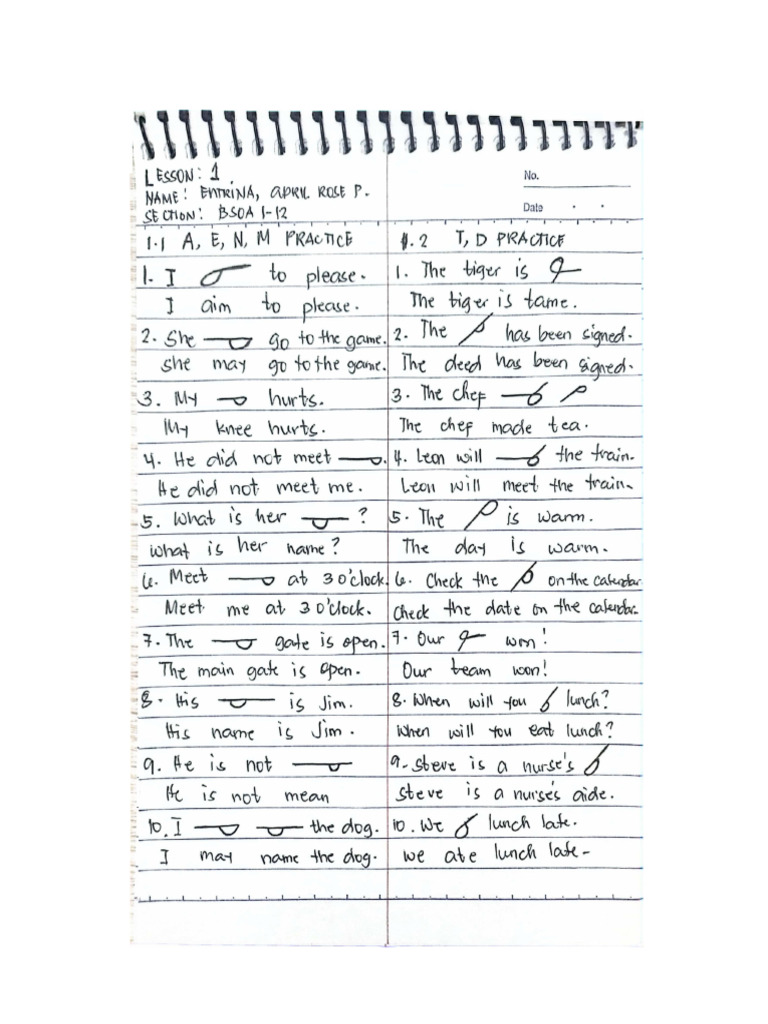 LESSON: 1.
NAME: ENTRINA, APRIL ROSE P.
SECTION: BSOA 1-12
No.
Date
1.1 A, E, N, M PRACTICE
1. I to please.
I aim to please.
2. She go to the game.
she may go to the game.
3. My hurts.
My knee hurts.
4. He did not meet .
He did not meet me.
5. What is her ?
what is her name?
6. Meet at 3 o'clock.
Meet me at 3 o'clock.
7. The gate is open.
The main gate is open.
8. His is Jim.
His name is Jim.
9. He is not
He is not mean
10. I the dog.
I may name the dog.
1.2 T, D PRACTICE
1. The tiger is
The tiger is tame.
2. The has been signed.
The deed has been signed.
3. The chef
The chef made tea.
4. Leon will the train.
Leon will meet the train.
5. The is warm.
The day is warm.
6. Check the on the calendar.
Check the date on the calendar.
7. Our won!
Our team won!
8. When will you lunch?
When will you eat lunch?
9. Steve is a nurse's
Steve is a nurse's aide.
10. We lunch late.
we ate lunch late.